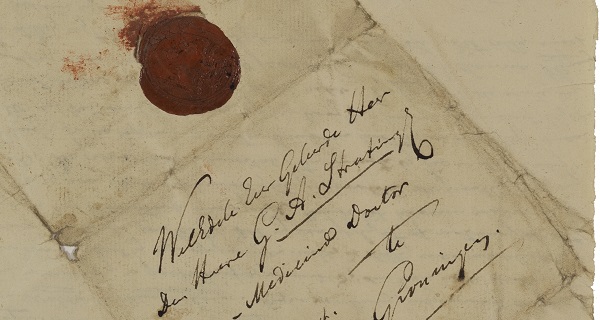 WelEdele Zeer Geleerde Heer
Den Heere G. A. Stratingh
Medicina Doctor
te
Groningen.